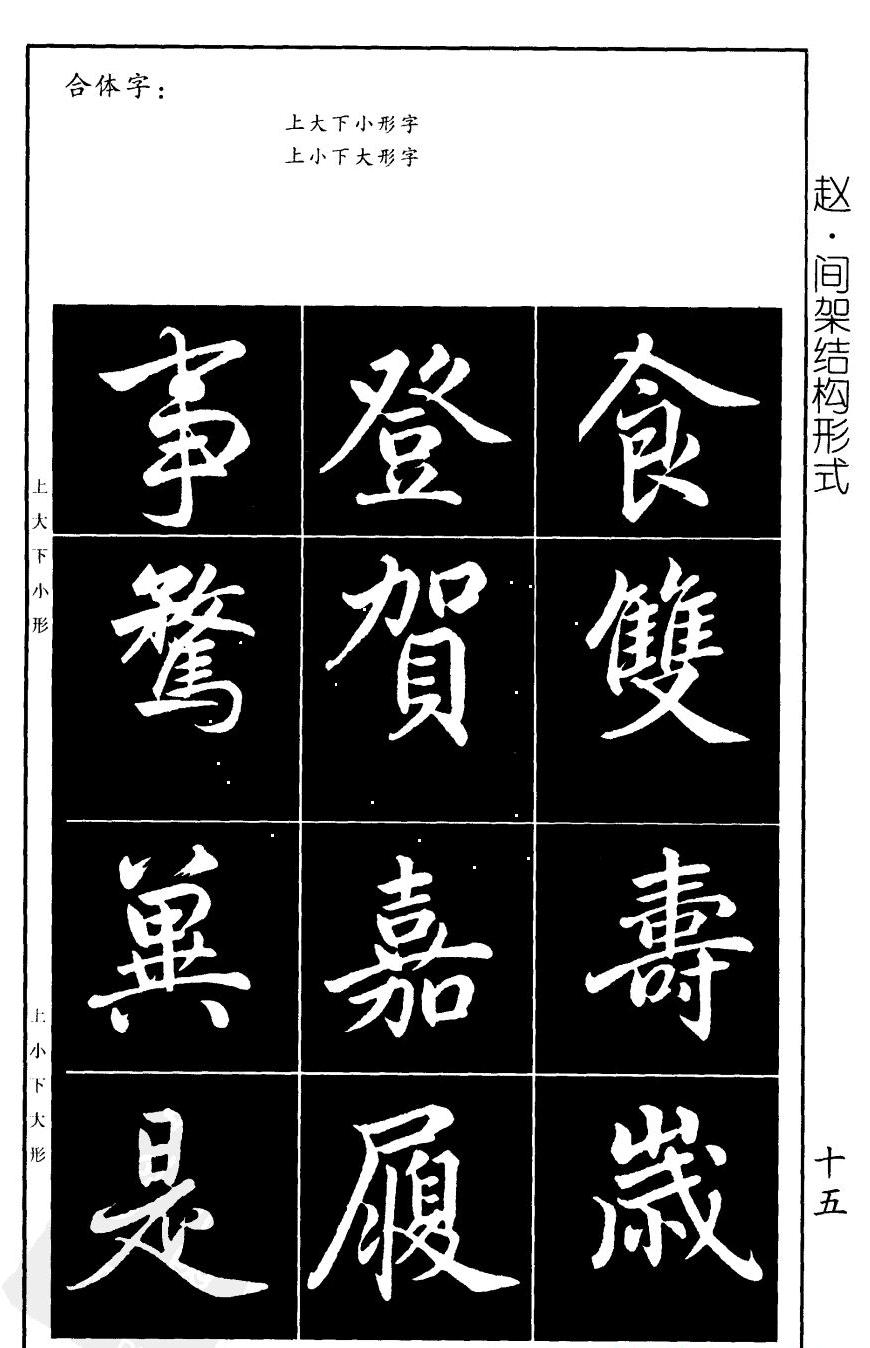 合体字：
上大下小形字
上小下大形字
赵·间架结构形式
上大下小形
食 登 事
雙 賀 騖
上小下大形
壽 嘉
歲 履 是
十五